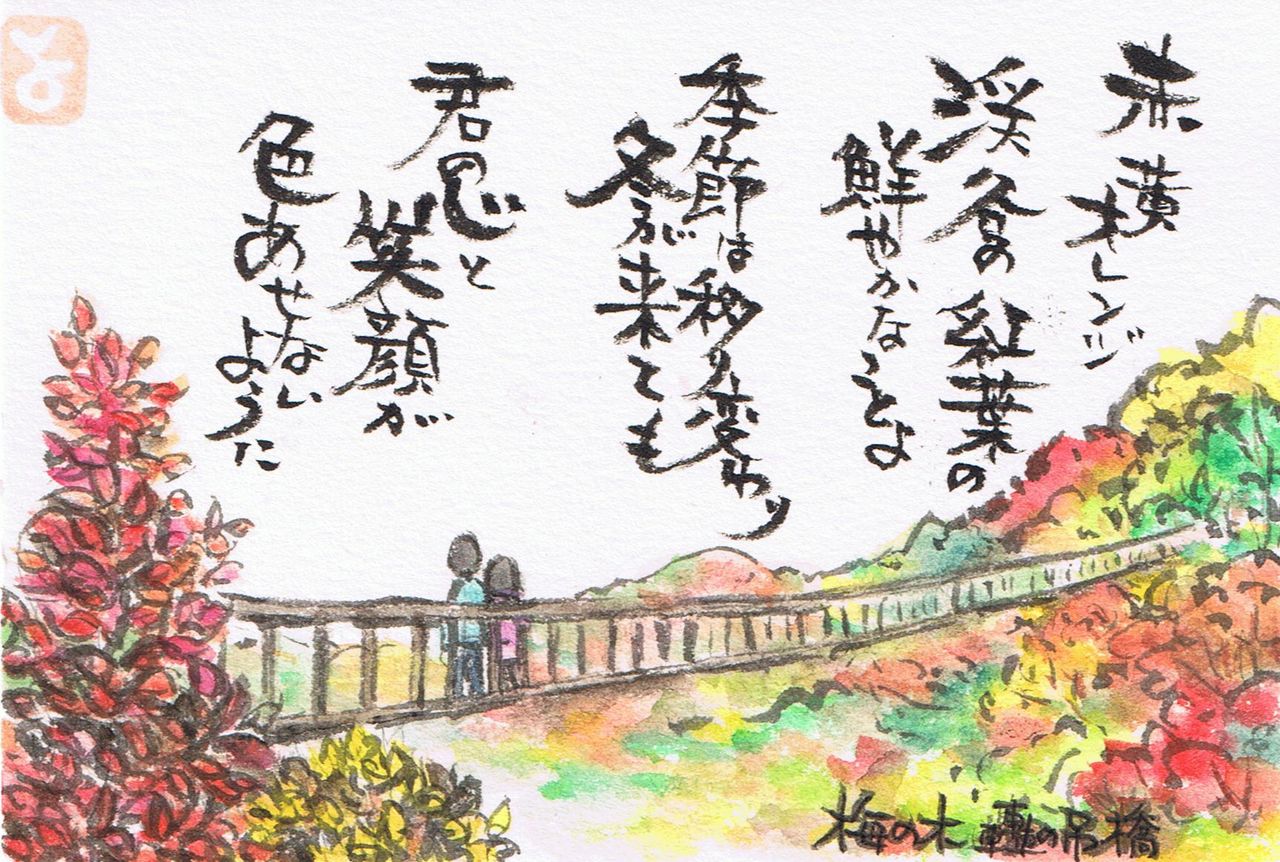 赤 横
オレンジ
渓谷の紅葉の
鮮やかなことよ
季節は移り変わり
冬が来ても
君の心と
笑顔が
色あせない
ように
梅の木轟の吊橋